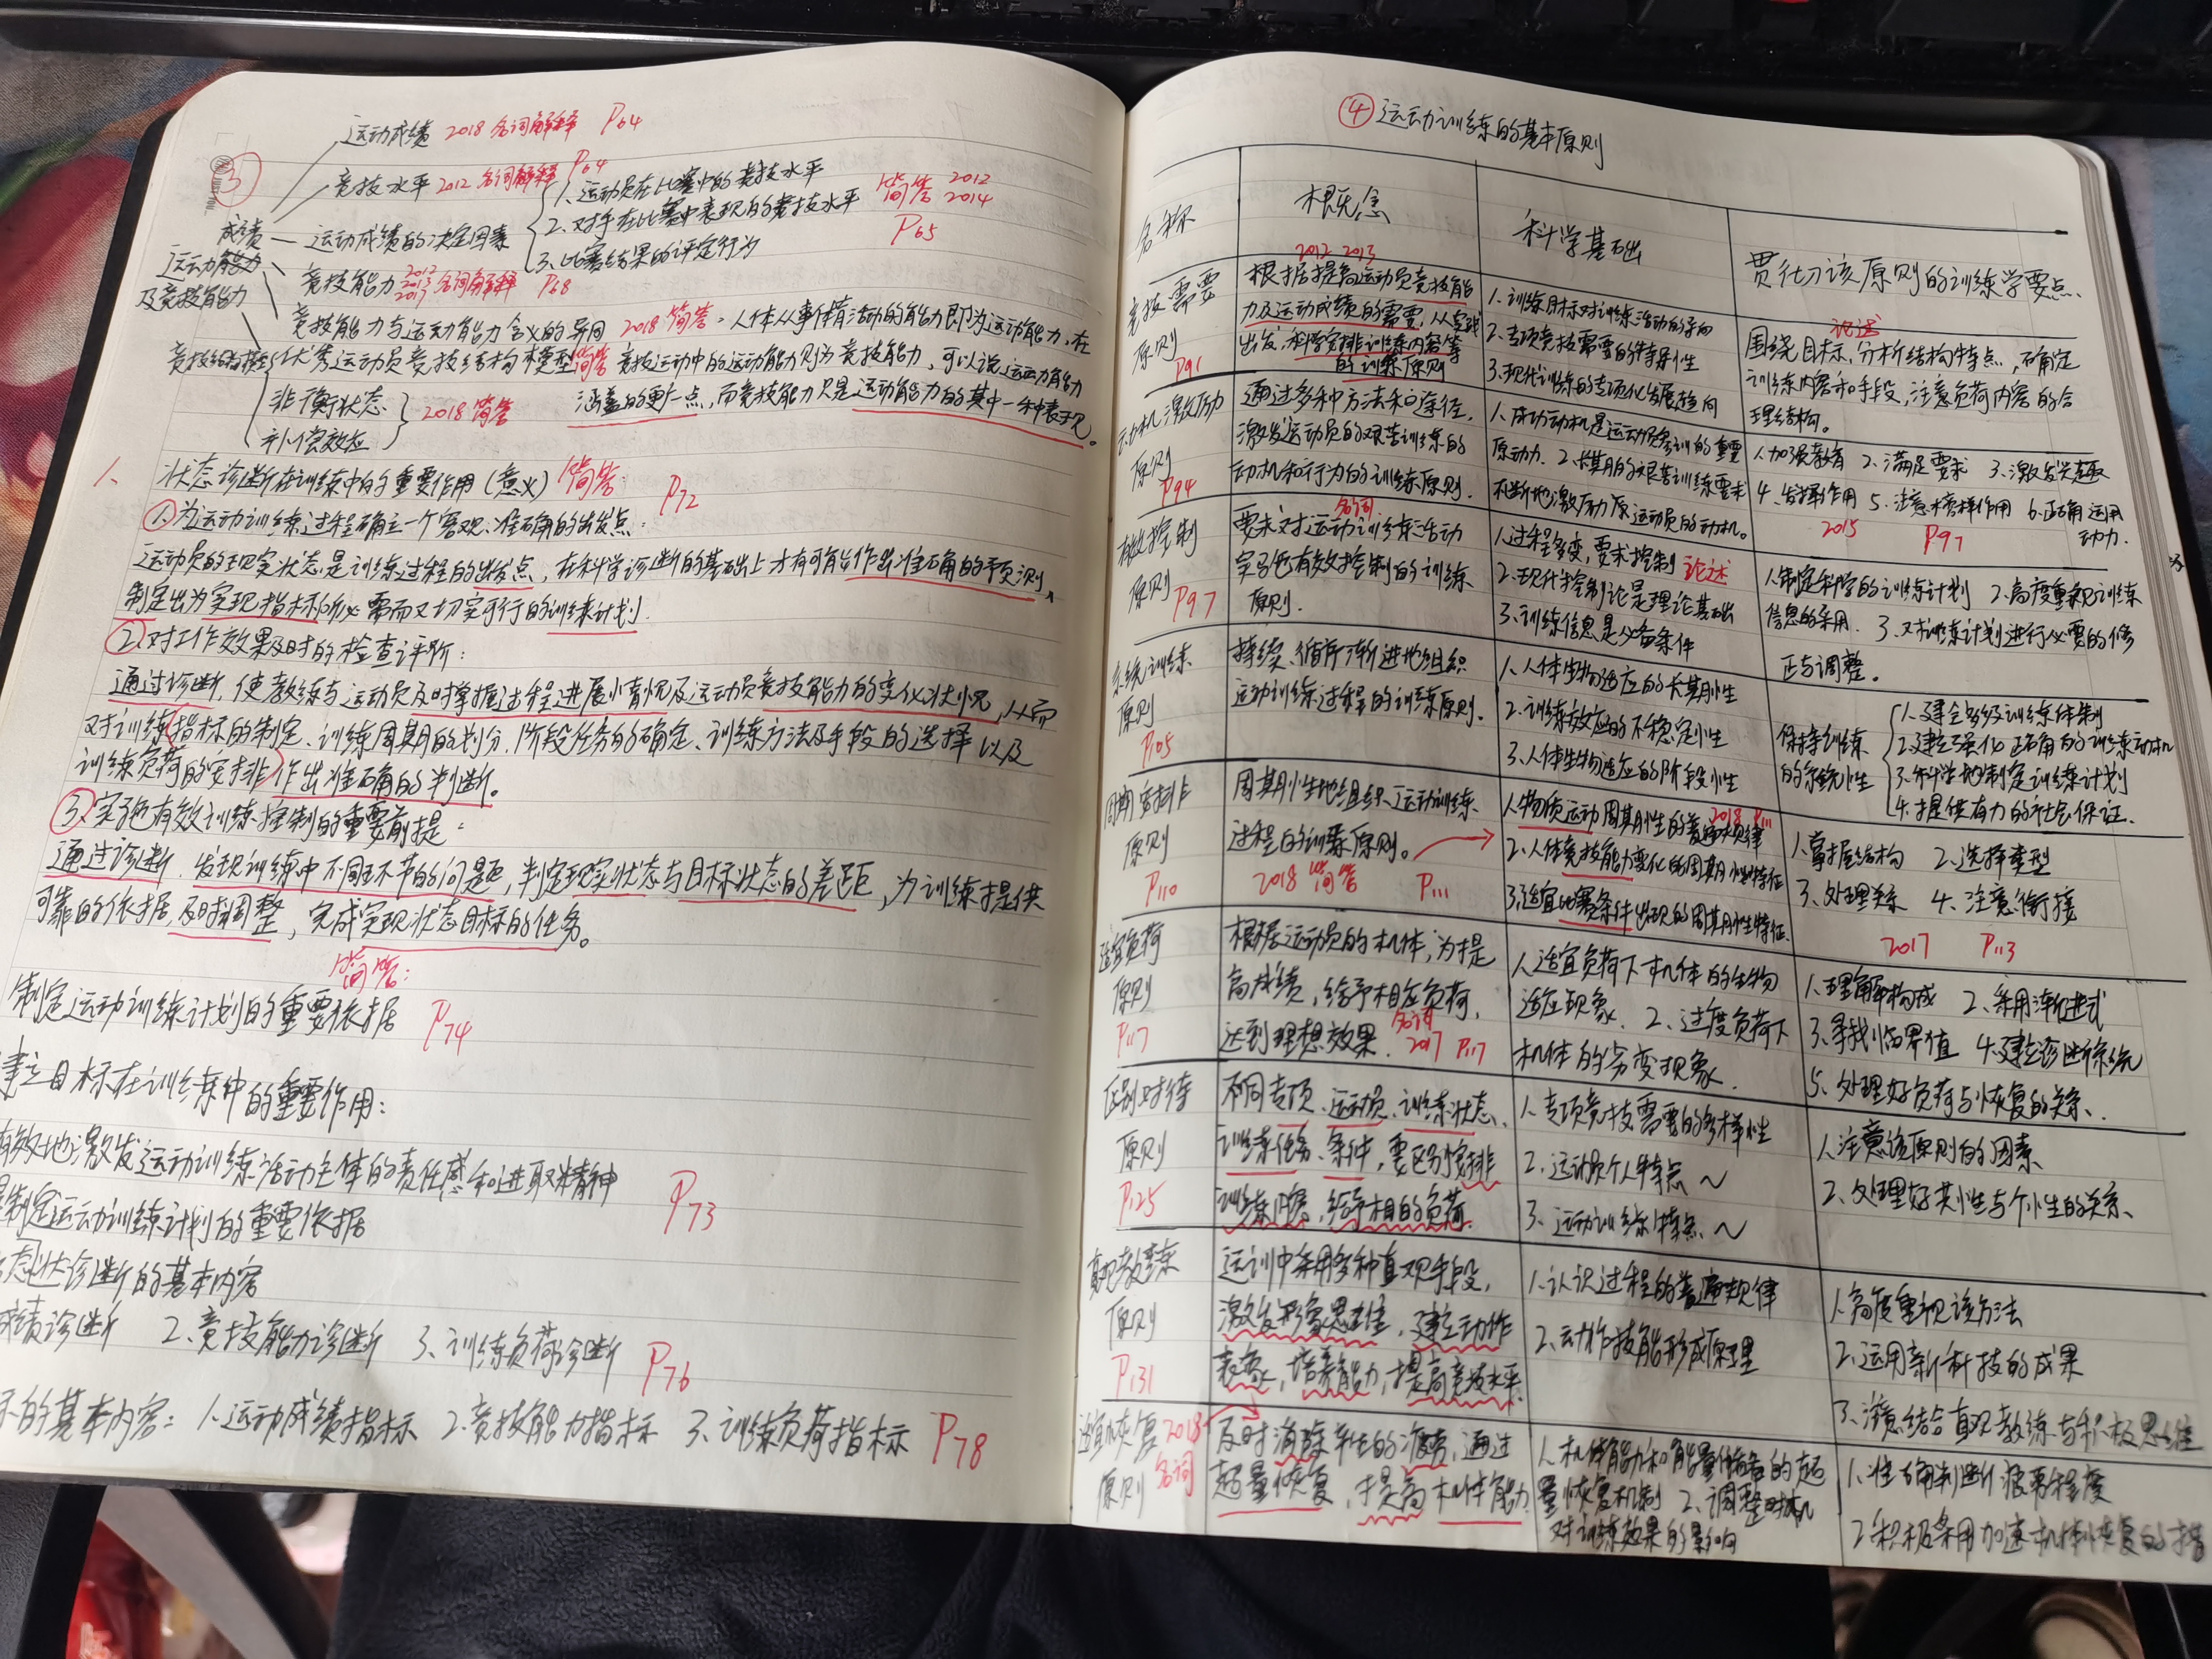 ③
运动成绩 2018 名词解释 P64
竞技水平 2012 名词解释 P64
成绩
运动能力
及竞技能力
运动成绩的决定因素
1、运动员在比赛中的竞技水平
2、对手在比赛中表现的竞技水平
3、比赛结果的评定行为
简答 2012
2014
P65
竞技能力 2012 2017 名词解释 P68
竞技能力与运动能力含义的异同 2018 简答、人体从事体育活动的能力即为运动能力,在
优秀运动员竞技结构模型 简答 竞技运动中的运动能力则为竞技能力,可以说运动能力
非衡状态
补偿效应
2018 简答
涵盖的更广点,而竞技能力只是运动能力的其中一种表现。
状态诊断在训练中的重要作用(意义) 简答: P72
①、为运动训练过程确立一个客观、准确的出发点:
运动员的现实状态是训练过程的出发点,在科学诊断的基础上才有可能作出准确的预测,
制定出为实现指标所必需而又切实可行的训练计划.
②对工作效果及时的检查评价:
通过诊断,使教练与运动员及时掌握过程进展情况及运动员竞技能力的变化状况,从而
对训练指标的制定、训练周期的划分、阶段任务的确定、训练方法及手段的选择以及
训练负荷的安排作出准确的判断。
③、实施有效训练控制的重要前提:
通过诊断,发现训练中不同环节的问题,判定现实状态与目标状态的差距,为训练提供
可靠的依据,及时调整,完成实现状态目标的任务。
简答:
制定运动训练计划的重要依据 P74
建立目标在训练中的重要作用:
有效地激发运动训练活动主体的责任感和进取精神
是制定运动训练计划的重要依据 P73
态状诊断的基本内容
成绩诊断 2、竞技能力诊断 3、训练负荷诊断 P76
的基本内容: 1、运动成绩指标 2、竞技能力指标 3、训练负荷指标 P78
④ 运动训练的基本原则
名称 概念 科学基础 贯彻该原则的训练学要点
竞技需要
原则
P91
2012 2013
根据提高运动员竞技能
力及运动成绩的需要,从实战
出发,科学安排训练内容等
的训练原则
1、训练目标对训练活动的导向
2、专项竞技需要的特异性
3、现代训练的专项化发展趋向
论述
围绕目标,分析结构特点,确定
训练内容和手段,注意负荷内容的合
理结构。
动机激励
原则
P94
通过多种方法和途径,
激发运动员的艰苦训练的
动机和行为的训练原则.
1、成功动机是运动员参训的重要
原动力. 2、长期的艰苦训练要求
不断地激励原运动员的动机。
1、加强教育 2、满足要求 3、激发兴趣
4、发挥作用 5、注意榜样作用 6、正确运用
动力.
2015 P97
有效控制
原则 P97
名词
要求对运动训练活动
实施有效控制的训练
原则.
1、过程多变,要求控制 论述
2、现代控制论是理论基础
3、训练信息是必备条件
1、制定科学的训练计划 2、高度重视训练
信息的采用. 3、对训练计划进行必要的修
正与调整。
系统训练
原则
P105
持续、循序渐进地组织
运动训练过程的训练原则.
1、人体生物适应的长期性
2、训练效应的不稳定性
3、人体生物适应的阶段性
保持训练
的系统性
1、建全多级训练体制
2、建立强化正确的训练动机
3、科学地制定训练计划
4、提供有力的社会保证.
周期安排
原则
P110
周期性地组织运动训练
过程的训练原则。
2018 简答 P111
1、物质运动周期性的普遍规律
2018 P111
2、人体竞技能力变化的周期性特征
3、适宜比赛条件出现的周期性特征.
1、掌握结构 2、选择类型
3、处理关系 4、注意衔接
2017 P113
适宜负荷
原则
P117
根据运动员的机体,为提
高成绩,给予相应负荷,
达到理想效果.
名词 2017 P117
1、适宜负荷下机体的生物
适应现象. 2、过度负荷下
机体的劣变现象.
1、理解构成 2、采用渐进式
3、寻找临界值 4、建立诊断系统
5、处理好负荷与恢复的关系.
区别对待
原则
P125
不同专项、运动员、训练状态、
训练任务、条件,要区别安排
训练内容,给予相的负荷.
1、专项竞技需要的多样性
2、运动员个人特点~
3、运动训练特点~
1、注意该原则的因素
2、处理好共性与个性的关系、
直观教练
原则
P131
运训中采用多种直观手段,
激发形象思维,建立动作
表象,培养能力,提高竞技水平.
1、认识过程的普遍规律
2、动作技能形成原理
1、高度重视该方法
2、运用新科技的成果
3、注意结合直观教练与积极思维
适宜恢复
原则
2018
名词
及时消除产生的疲劳,通过
超量恢复,提高机体能力
1、机体能力和能量储备的超
量恢复机制 2、调整时机
对训练效果的影响
1、准确判断疲劳程度
2、积极采用加速机体恢复的措